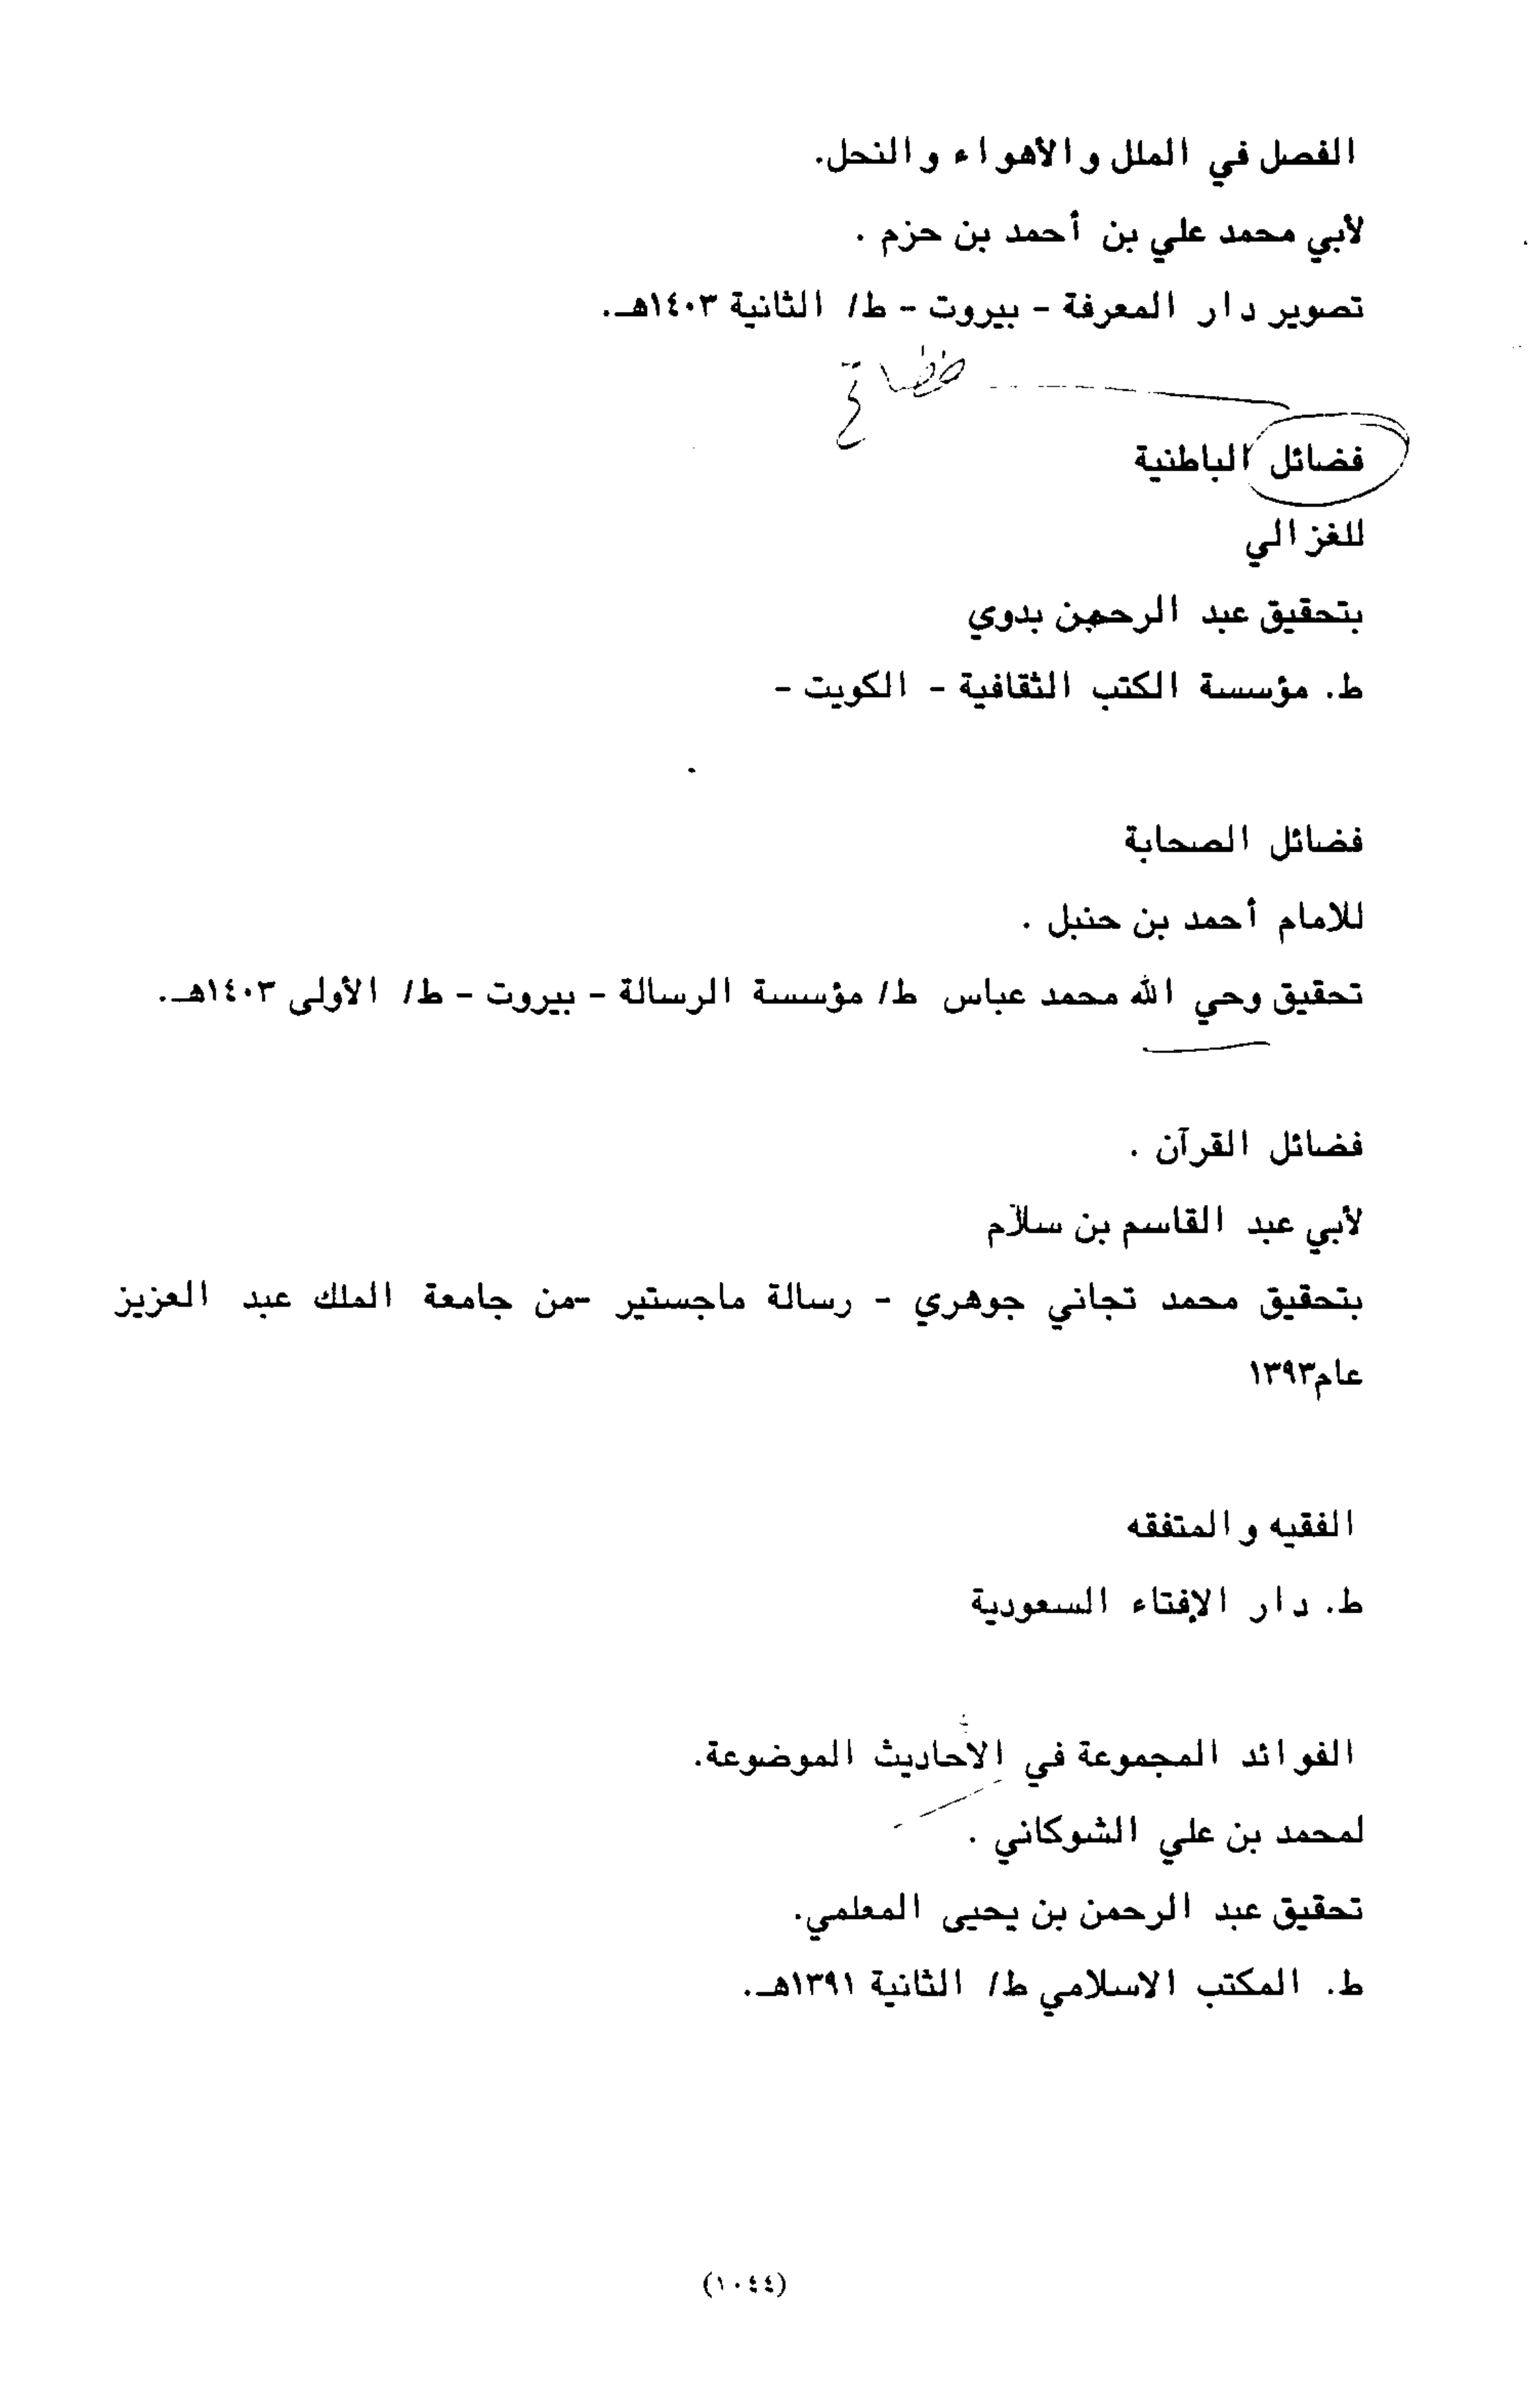 الفصل في الملل والأهواء والنحل.
لأبي محمد علي بن أحمد بن حزم .
تصوير دار المعرفة - بيروت - ط/ الثانية ١٤٠٣هـ.
فضائل الباطنية
للغزالي
بتحقيق عبد الرحمن بدوي
ط. مؤسسة الكتب الثقافية - الكويت -
فضائل الصحابة
للامام أحمد بن حنبل .
تحقيق وحي الله محمد عباس ط/ مؤسسة الرسالة - بيروت - ط/ الأولى ١٤٠٣هـ.
فضائل القرآن .
لأبي عبد القاسم بن سلام
بتحقيق محمد تجاني جوهري - رسالة ماجستير -من جامعة الملك عبد العزيز
عام١٣٩٣
الفقيه والمتفقه
ط. دار الإفتاء السعودية
الفوائد المجموعة في الأحاديث الموضوعة.
لمحمد بن علي الشوكاني .
تحقيق عبد الرحمن بن يحيى المعلمي.
ط. المكتب الاسلامي ط/ الثانية ١٣٩١هـ.
(١٠٤٤)